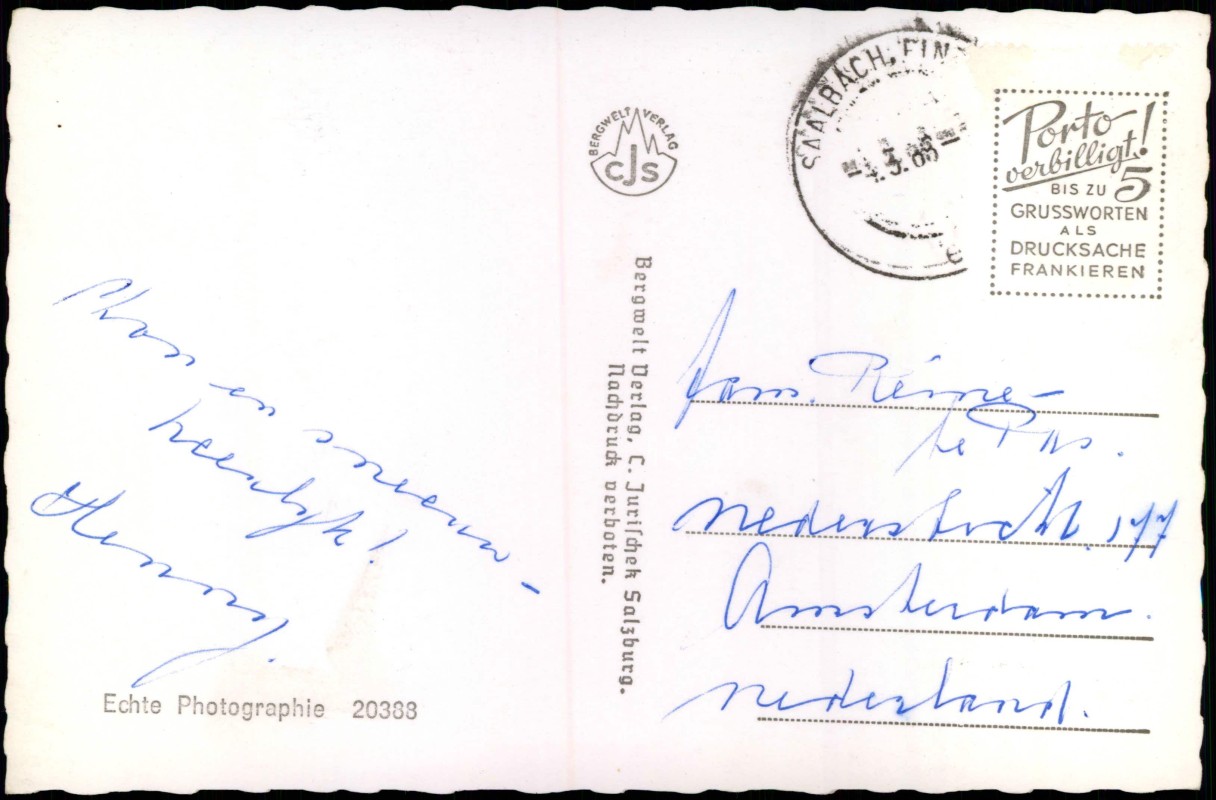 zon en sneeuw-
heerlijk!
Henny.
Echte Photographie 20388
BERGWELT VERLAG
CJS
Bergwelt Verlag, C. Jurischek Salzburg.
Nachdruck verboten.
SAALBACH, PIN
3. 68
Porto
verbilligt!
BIS ZU 5
GRUSSWORTEN
ALS
DRUCKSACHE
FRANKIEREN
fam.
te Pas.
177
Amsterdam.
nederland.